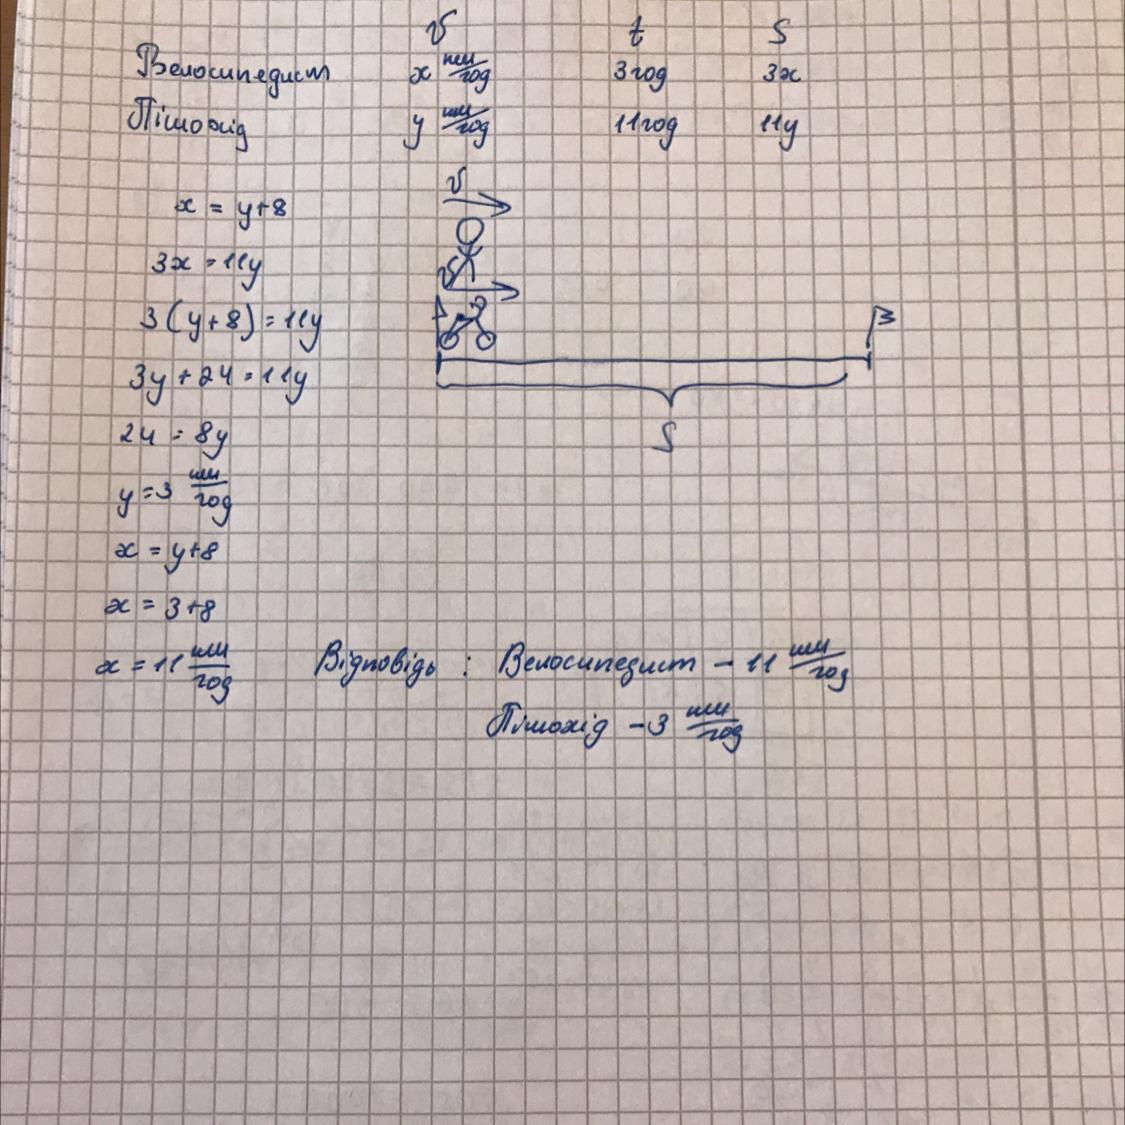 v t S
Велосипедист x км/год 3год 3x
Пішохід y км/год 11год 11y
v
x = y+8
3x = 11y
v
3(y+8) = 11y
3y + 24 = 11y
24 = 8y
S
y = 3 км/год
x = y+8
x = 3+8
x = 11 км/год Відповідь : Велосипедист – 11 км/год
Пішохід – 3 км/год